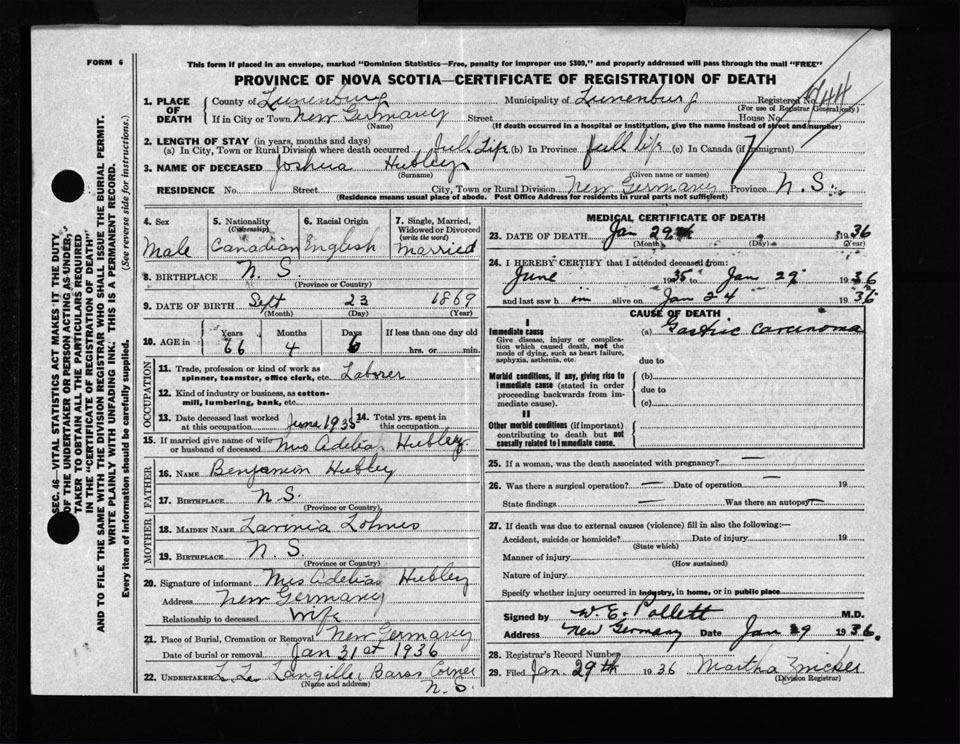 FORM 6
This form if placed in an envelope, marked "Dominion Statistics—Free, penalty for improper use $300," and properly addressed will pass through the mail "FREE"
PROVINCE OF NOVA SCOTIA—CERTIFICATE OF REGISTRATION OF DEATH
1. PLACE OF DEATH County of Lunenburg Municipality of Lunenburg Registered No.
(For use of Registrar General only)
If in City or Town New Germany Street House No.
(Name) (If death occurred in a hospital or institution, give the name instead of street and number)
2. LENGTH OF STAY (in years, months and days)
(a) In City, Town or Rural Division where death occurred full Life (b) In Province full life (c) In Canada (if immigrant)
3. NAME OF DECEASED Joshua Hubley
(Surname) (Given name or names)
RESIDENCE No. Street City, Town or Rural Division New Germany Province N. S.
(Residence means usual place of abode. Post Office Address for residents in rural parts not sufficient)
4. Sex Male
5. Nationality (Citizenship) Canadian
6. Racial Origin English
7. Single, Married, Widowed or Divorced (write the word) Married
8. BIRTHPLACE N. S.
(Province or Country)
9. DATE OF BIRTH Sept 23 1869
(Month) (Day) (Year)
10. AGE in Years 66 Months 4 Days 6 If less than one day old
hrs. or min.
OCCUPATION
11. Trade, profession or kind of work as spinner, teamster, office clerk, etc. Laborer
12. Kind of industry or business, as cotton-mill, lumbering, bank, etc.
13. Date deceased last worked at this occupation June 1935
14. Total yrs. spent in this occupation
15. If married give name of wife or husband of deceased Mrs Adelia Hubley
FATHER
16. NAME Benjamin Hubley
17. BIRTHPLACE N.S.
(Province or Country)
MOTHER
18. MAIDEN NAME Lavinia
19. BIRTHPLACE N. S.
(Province or Country)
20. Signature of informant Mrs Adelia Hubley
Address New Germany
Relationship to deceased Wife
21. Place of Burial, Cremation or Removal New Germany
Date of burial or removal Jan 31st 1936
22. UNDERTAKER Langille, Corner
(Name and address) N. S.
MEDICAL CERTIFICATE OF DEATH
23. DATE OF DEATH Jan 29th 1936
(Month) (Day) (Year)
24. I HEREBY CERTIFY that I attended deceased from:
June 1935 to Jan 29 1936
and last saw h im alive on Jan 24 1936
CAUSE OF DEATH
I
Immediate cause (a) Gastric carcinoma
Give disease, injury or complication which caused death, not the mode of dying, such as heart failure, asphyxia, asthenia, etc.
due to
Morbid conditions, if any, giving rise to immediate cause (stated in order proceeding backwards from immediate cause).
(b)
due to
(c)
II
Other morbid conditions (if important) contributing to death but not causally related to immediate cause.
25. If a woman, was the death associated with pregnancy? —
26. Was there a surgical operation? — Date of operation — 19
State findings — Was there an autopsy —
27. If death was due to external causes (violence) fill in also the following:—
Accident, suicide or homicide? Date of injury 19
(State which)
Manner of injury
(How sustained)
Nature of injury
Specify whether injury occurred in industry, in home, or in public place
Signed by W. E. Pollett M.D.
Address New Germany Date Jan 29 1936.
28. Registrar's Record Number
29. Filed Jan. 29th 1936 Martha Zwicker
(Division Registrar)
SEC. 46—VITAL STATISTICS ACT MAKES IT THE DUTY
OF THE UNDERTAKER OR PERSON ACTING AS UNDERTAKER TO OBTAIN ALL THE PARTICULARS REQUIRED
IN THE "CERTIFICATE OF REGISTRATION OF DEATH"
AND TO FILE THE SAME WITH THE DIVISION REGISTRAR WHO SHALL ISSUE THE BURIAL PERMIT.
WRITE PLAINLY WITH UNFADING INK. THIS IS A PERMANENT RECORD.
Every item of information should be carefully supplied. (See reverse side for instructions.)